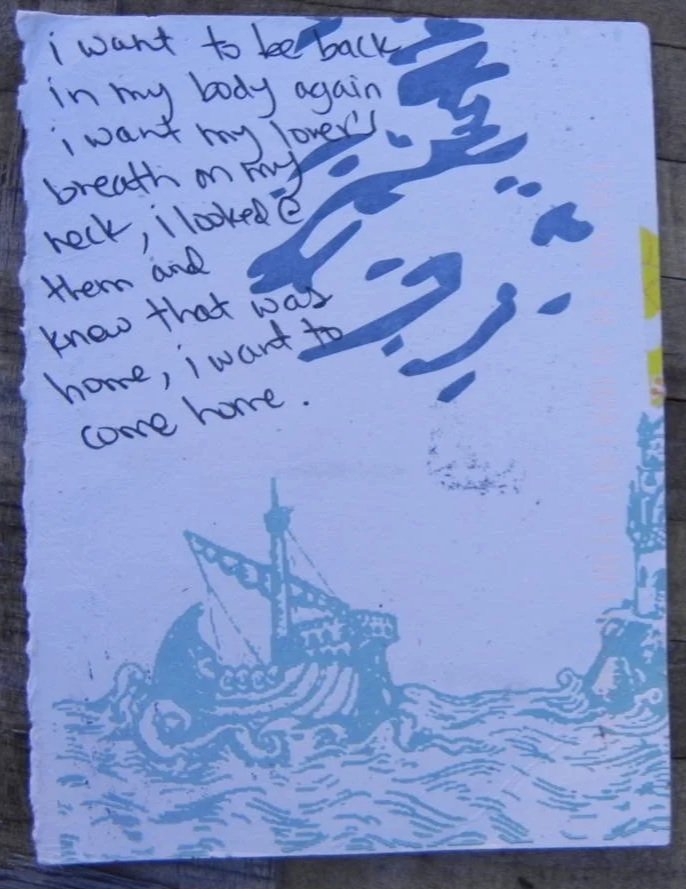 i want to be back
in my body again
i want my lover's
breath on my
neck, i looked @
them and
knew that was
home, i want to
come home.